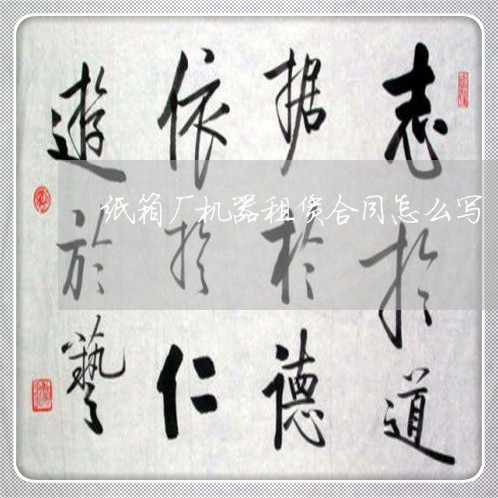 志于道
据于德
依于仁
遊於藝
纸箱厂机器租赁合同怎么写